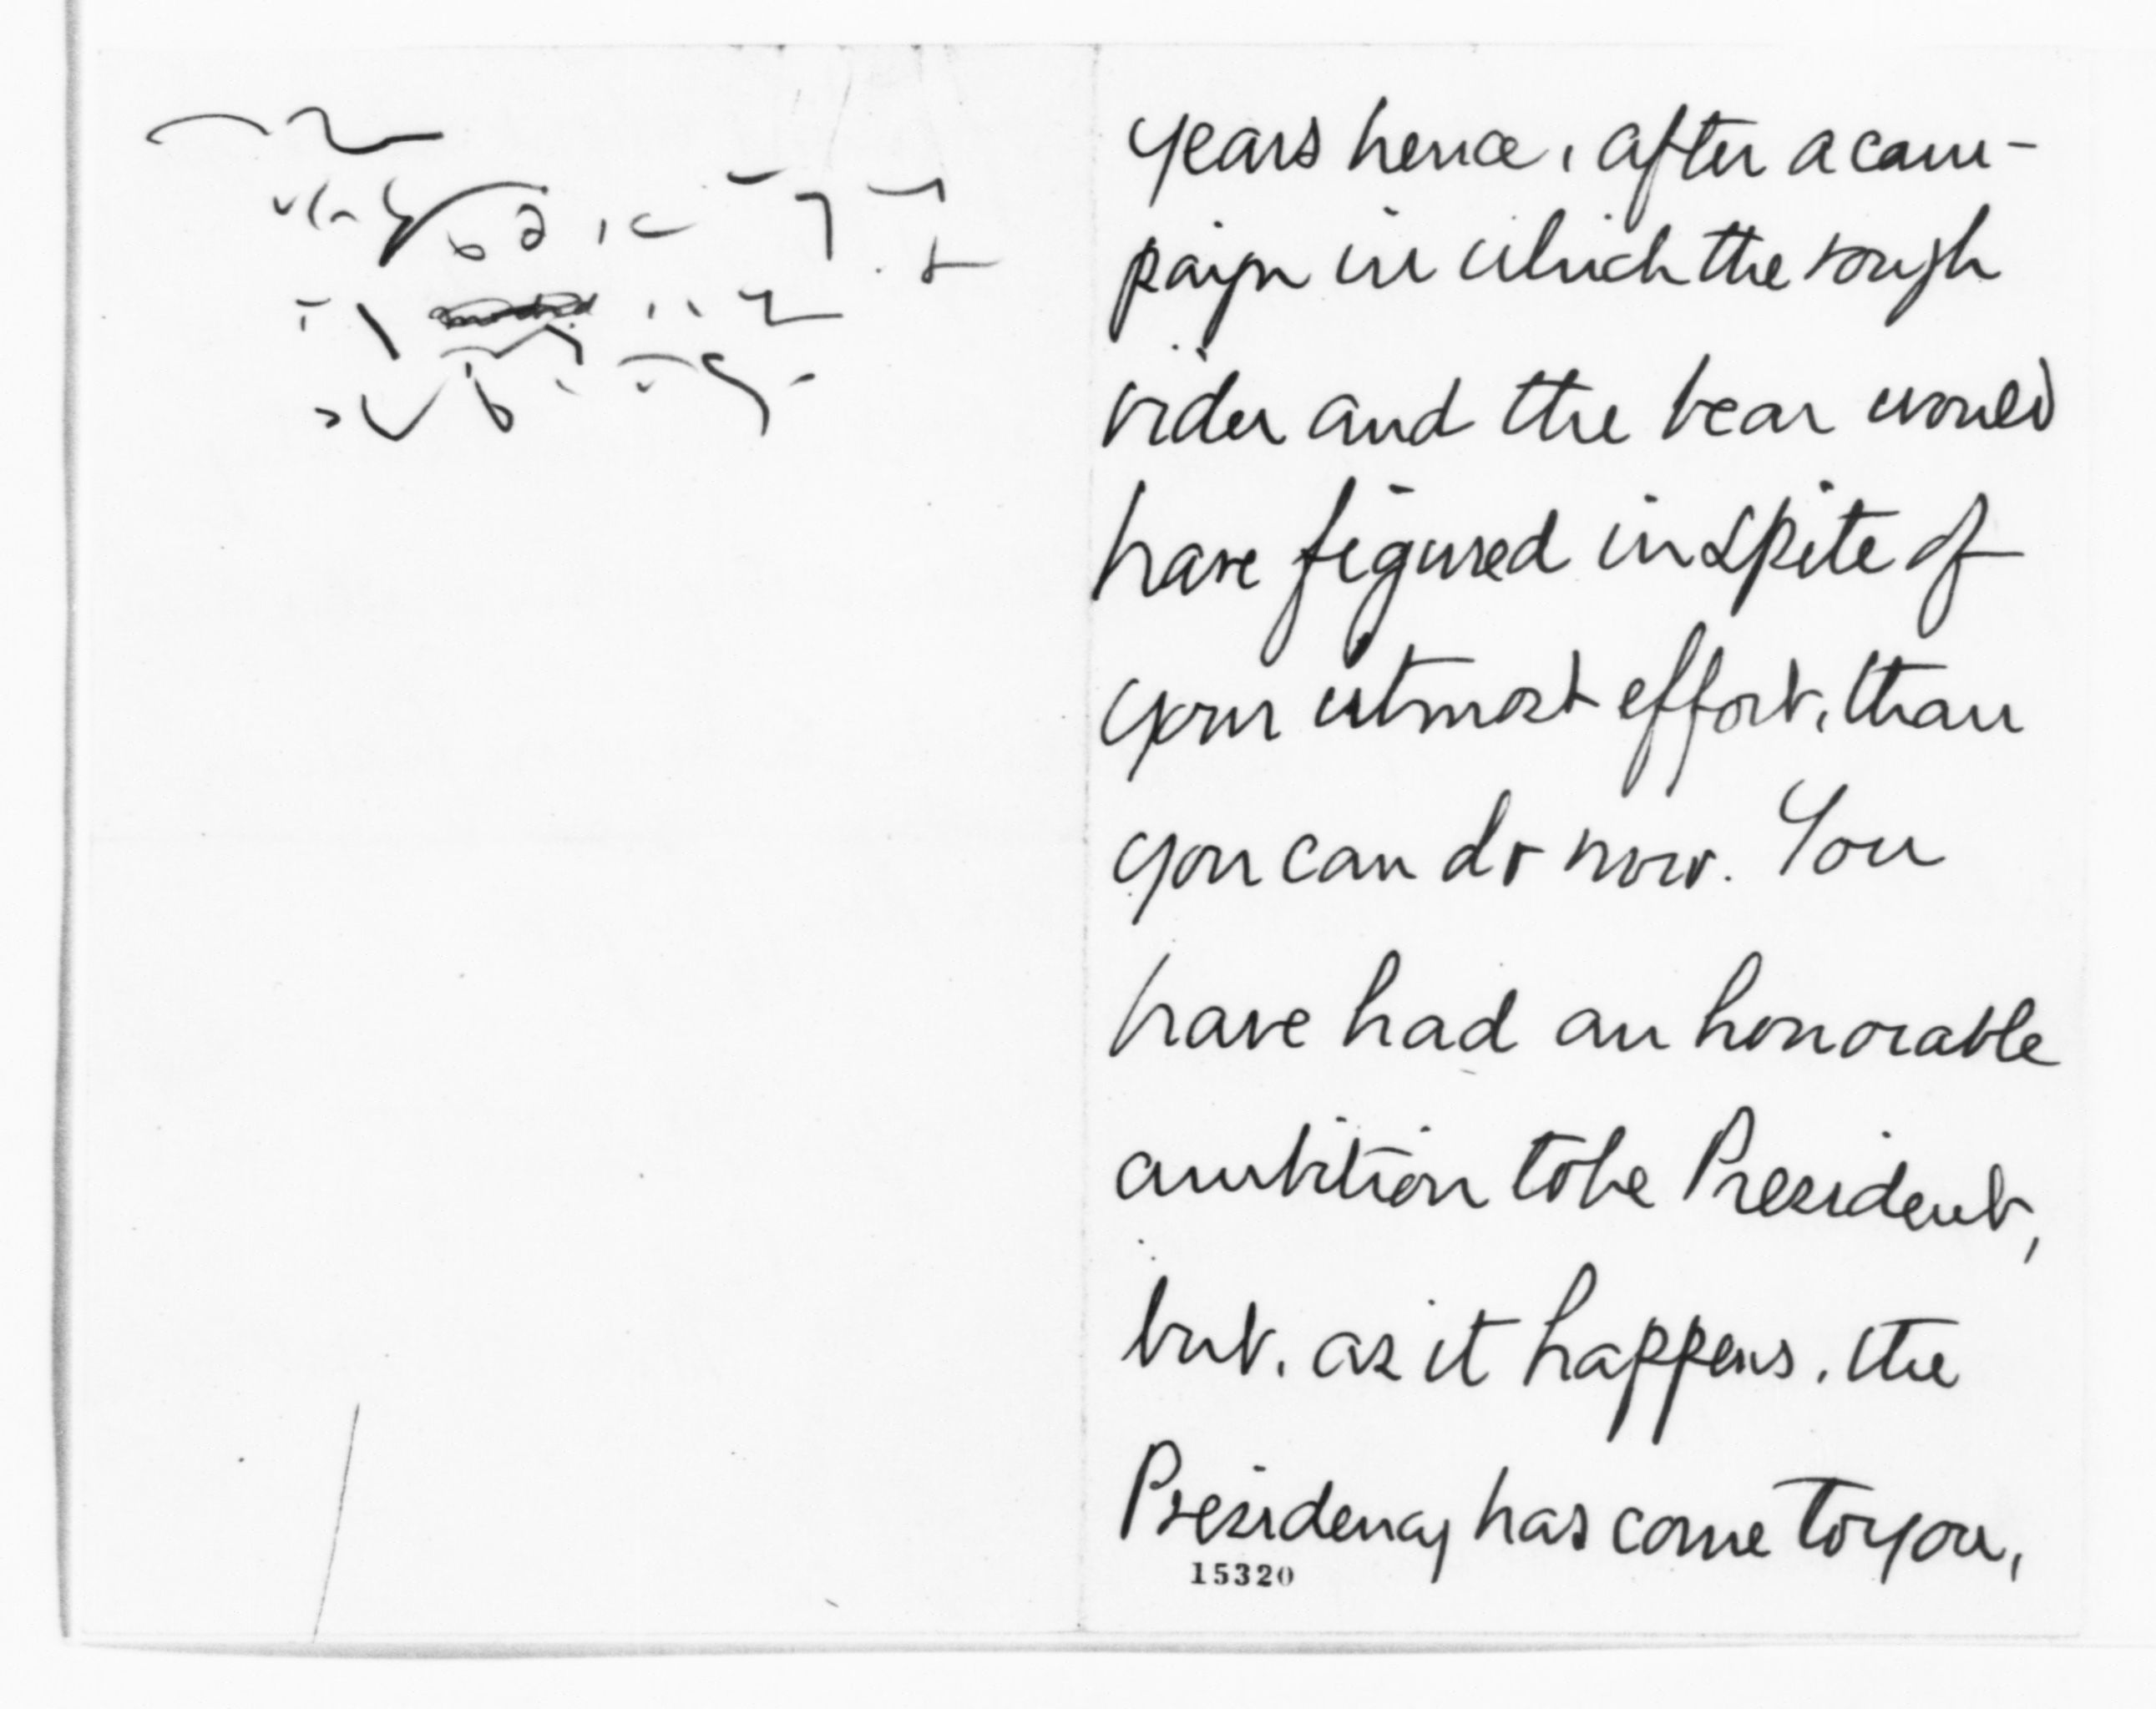 years hence, after a cam-
paign in which the rough
rider and the bear would
have figured in spite of
your utmost effort, than
you can do now. You
have had an honorable
ambition to be President,
but, as it happens, the
Presidency has come to you,
15320